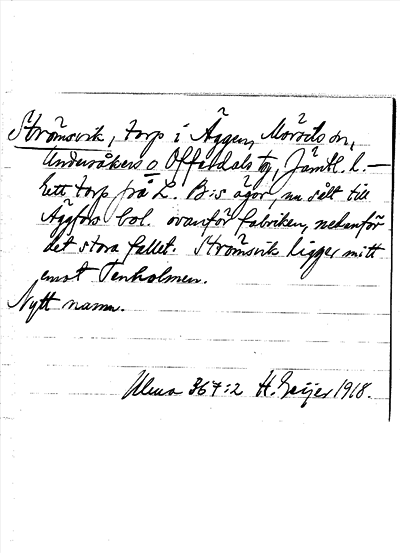 Strömsvik, torp i Äggen, Mörsils sn,
Undersåkers o Offerdals tg, Jämtl. l. —
Ett torp från L. B:s ägor, nu sålt till
Äggfors bol. ovanför fabriken, nedanför
det stora fallet. Strömsvik ligger mitt
emot Tenholmen.
Nytt namn.
Ulma 367:2 H. Geijer 1918.